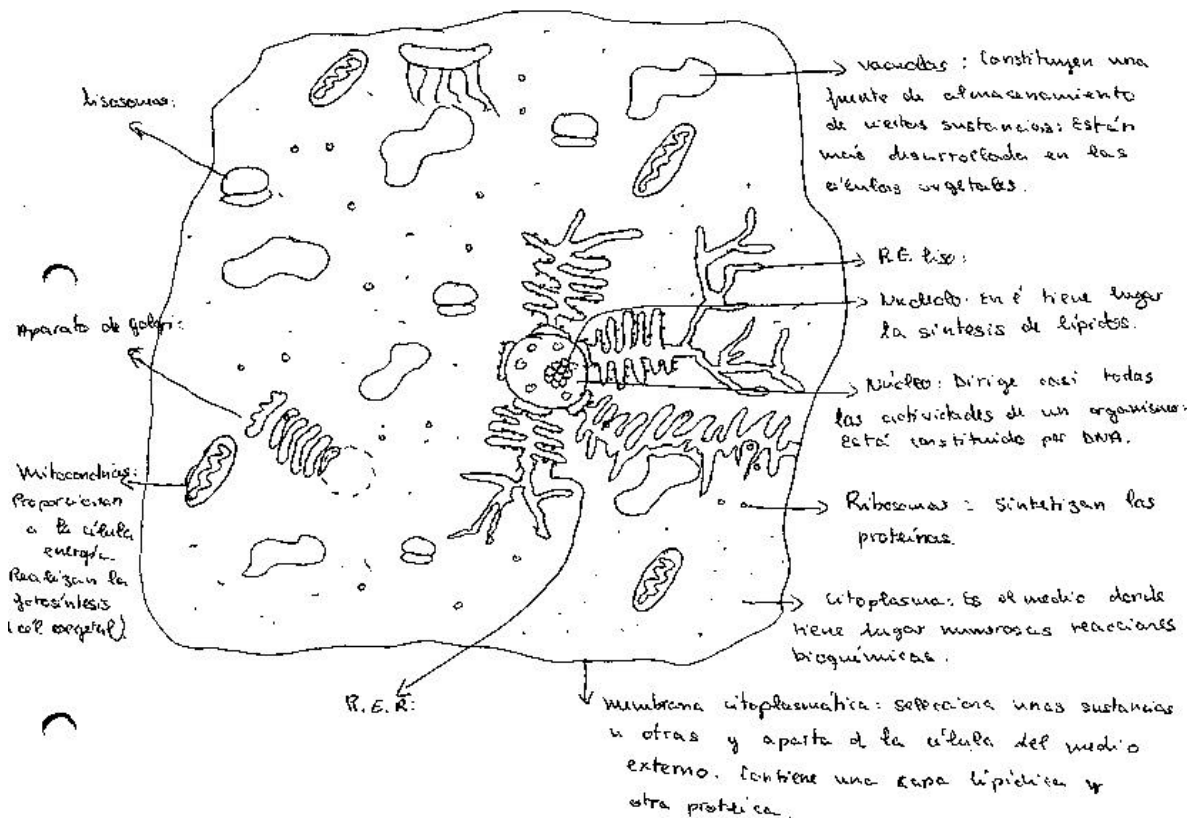 Lisosomas:
Aparato de golgi:
Mitocondrias:
Proporcionan
a la célula
energía.
Realizan la
fotosíntesis
(cél. vegetal).
R.E.R:
vacuolas: Constituyen una
fuente de almacenamiento
de ciertas sustancias: Están
más desarrollada en las
células vegetales.
R.E. liso:
Nucleolo: En é tiene lugar
la síntesis de lípidos.
Núcleo: Dirige casi todas
las actividades de un organismo:
Está constituido por DNA.
Ribosomas: Sintetizan las
proteínas.
Citoplasma: Es el medio donde
tiene lugar numerosas reacciones
bioquímicas.
Membrana citoplasmática: selecciona unas sustancias
u otras y aparta d la célula del medio
externo. Contiene una capa lipídica y
otra protéica.